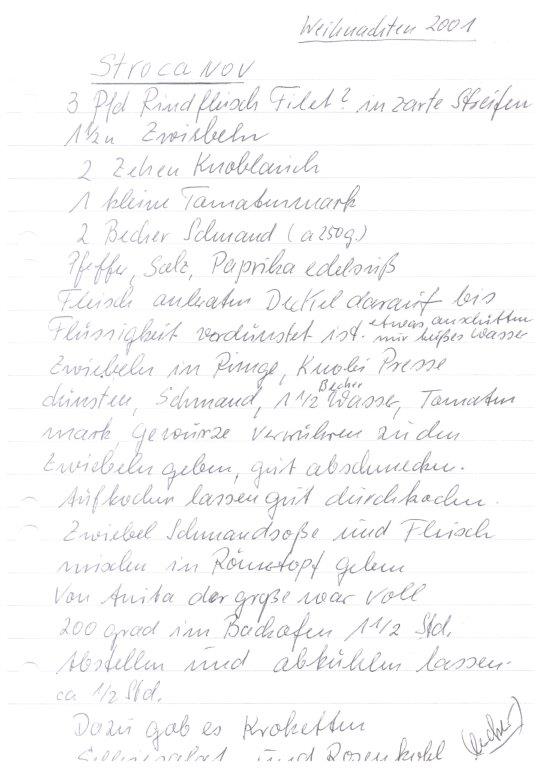 Weihnachten 2001
Strocanov
3 Pfd Rindfleisch Filet? in zarte Streifen
1 1/2 Zwiebeln
2 Zehen Knoblauch
1 kleine Tomatenmark
2 Becher Schmand (a 250g)
Pfeffer, Salz, Paprika edelsüß
Fleisch anbraten Deckel darauf bis
Flüssigkeit verdünstet ist. etwas anschütten
nur heißes Wasser
Zwiebeln in Ringe, Knobi Presse
dünsten, Schmand, 1 1/2 Becher Wasser, Tomaten
mark, Gewürze verrühren zu den
Zwiebeln geben, gut abschmecken.
Aufkochen lassen gut durchkochen.
Zwiebel Schmandsoße und Fleisch
mischen in Römertopf geben
Von Anita der große war voll
200 grad im Backofen 1 1/2 Std.
Abstellen und abkühlen lassen.
ca 1/2 Std.
Dazu gab es Kroketten
und Rosenkohl (lecker)